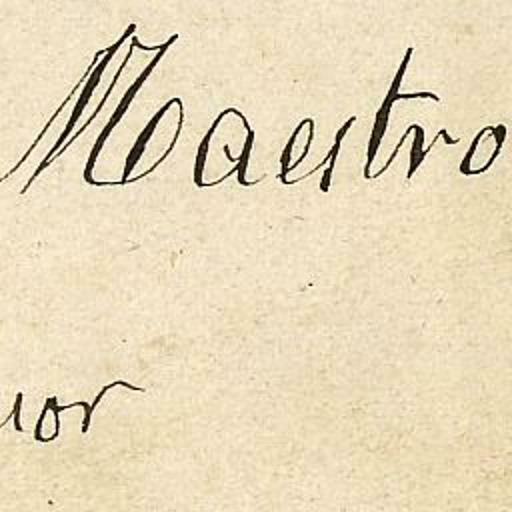 Maestro
uor